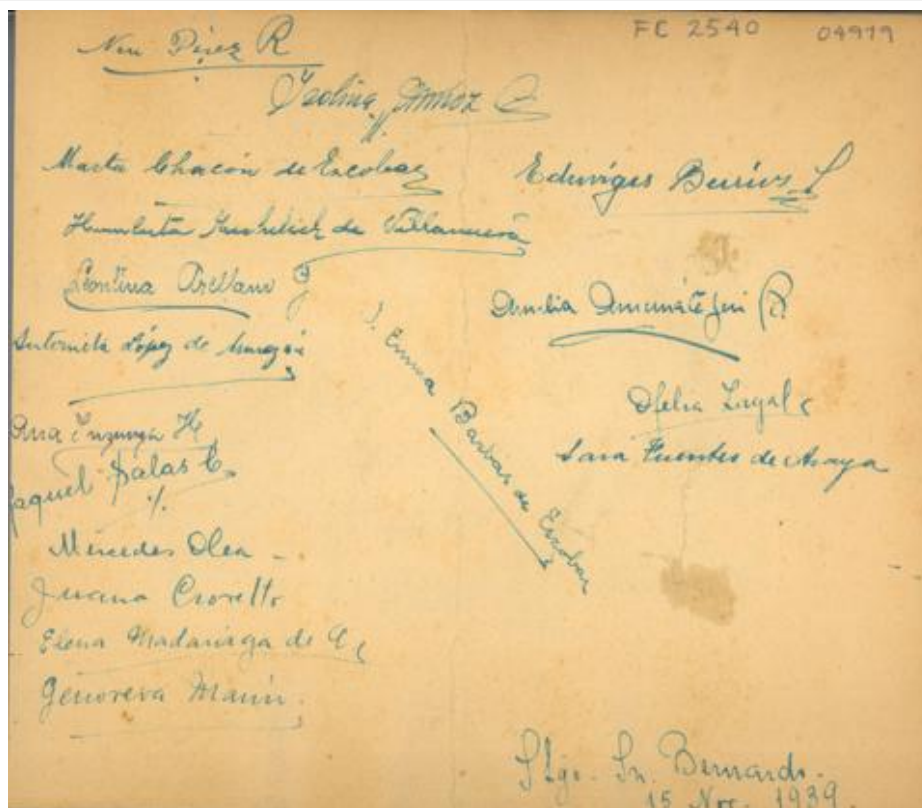 FC 2540 04919
Pérez R
Isolina Muñoz C.
Marta Chacón de Escobar
Eduviges Berríos L
Humberta de Villanueva
Leontina Arellano G
Amelia Amunátegui R.
Antonieta López de
J. Emma Barbas de Escobar
Ofelia Lagal
Ana Inzunza H
Sara Fuentes de Araya
Raquel Salas C.
Mercedes Olea -
Juana Crovetto
Elena Madariaga de
Genoveva Marín.
Stgo. Sn. Bernardo.
15 Nov. 1939